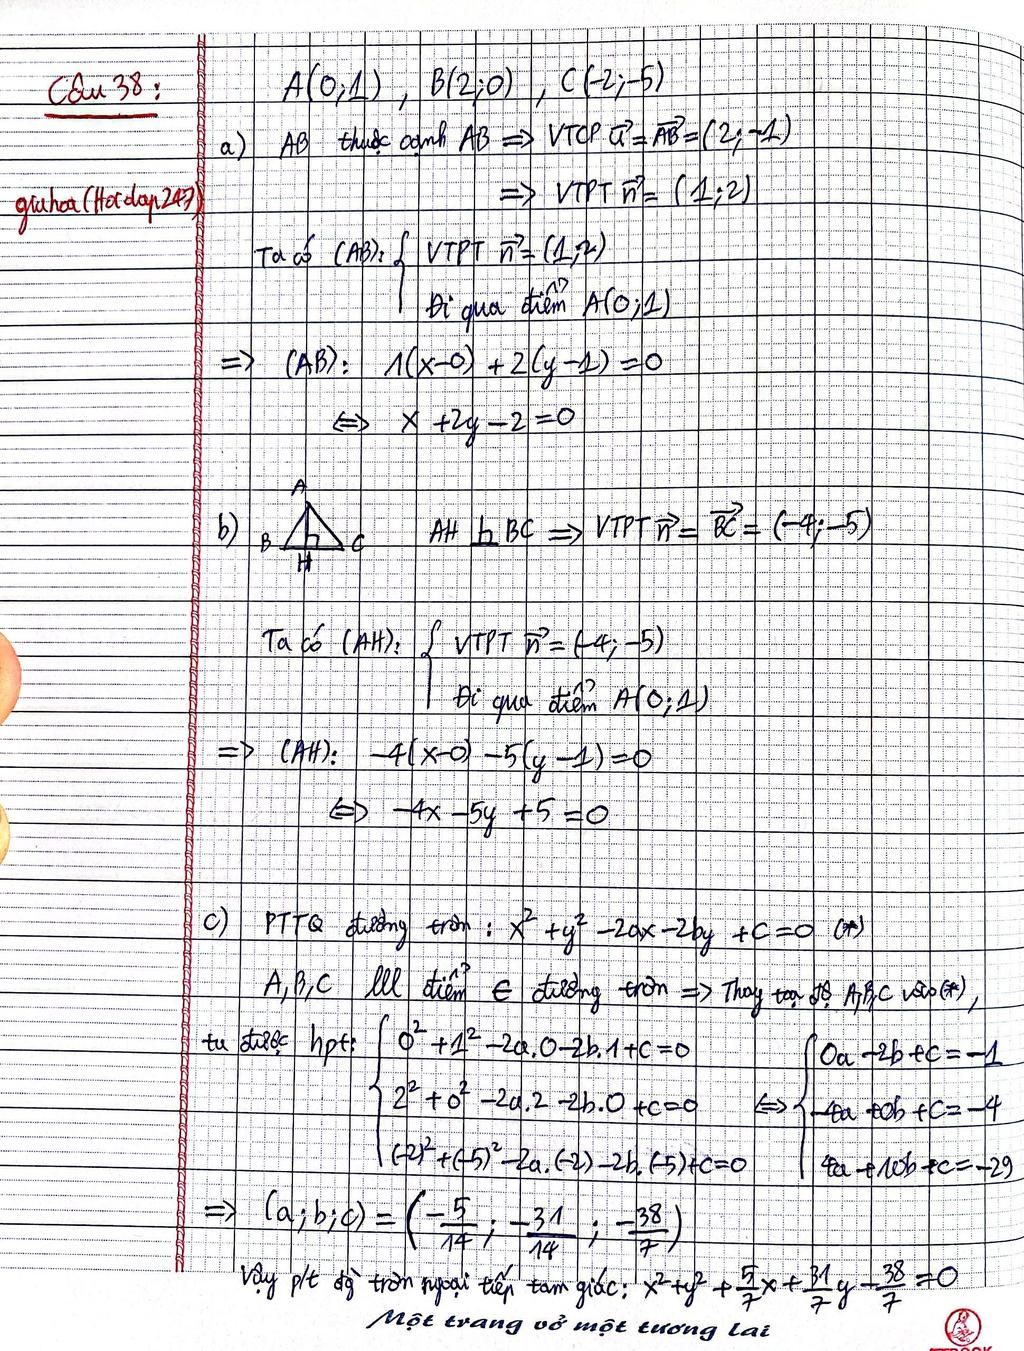 Câu 38: A(0;1) , B(2;0) , C(-2;-5)
a) AB thuộc cạnh AB => VTCP u⃗ = AB⃗ = (2;-1)
giahoa(Hoidap247) => VTPT n⃗ = (1;2)
Ta có (AB): { VTPT n⃗ = (1;2)
Đi qua điểm A(0;1)
=> (AB): 1(x-0) + 2(y-1) = 0
<=> x + 2y - 2 = 0
A
b) B H C AH ⊥ BC => VTPT n⃗ = BC⃗ = (-4;-5)
Ta có (AH): { VTPT n⃗ = (-4;-5)
Đi qua điểm A(0;1)
=> (AH): -4(x-0) - 5(y-1) = 0
<=> -4x - 5y + 5 = 0
c) PTTQ đường tròn: x² + y² - 2ax - 2by + c = 0 (*)
A,B,C điểm ∈ đường tròn => Thay toạ độ A,B,C vào (*),
ta được hpt: { 0² + 1² - 2a.0 - 2b.1 + c = 0
2² + 0² - 2a.2 - 2b.0 + c = 0
(-2)² + (-5)² - 2a.(-2) - 2b.(-5) + c = 0
<=> { 0a - 2b + c = -1
-4a + 0b + c = -4
4a + 10b + c = -29
=> (a;b;c) = (-5/14 ; -31/14 ; -38/7)
Vậy p/t đg tròn ngoại tiếp tam giác: x² + y² + 5/7x + 31/7y - 38/7 = 0
Một trang vở một tương lai